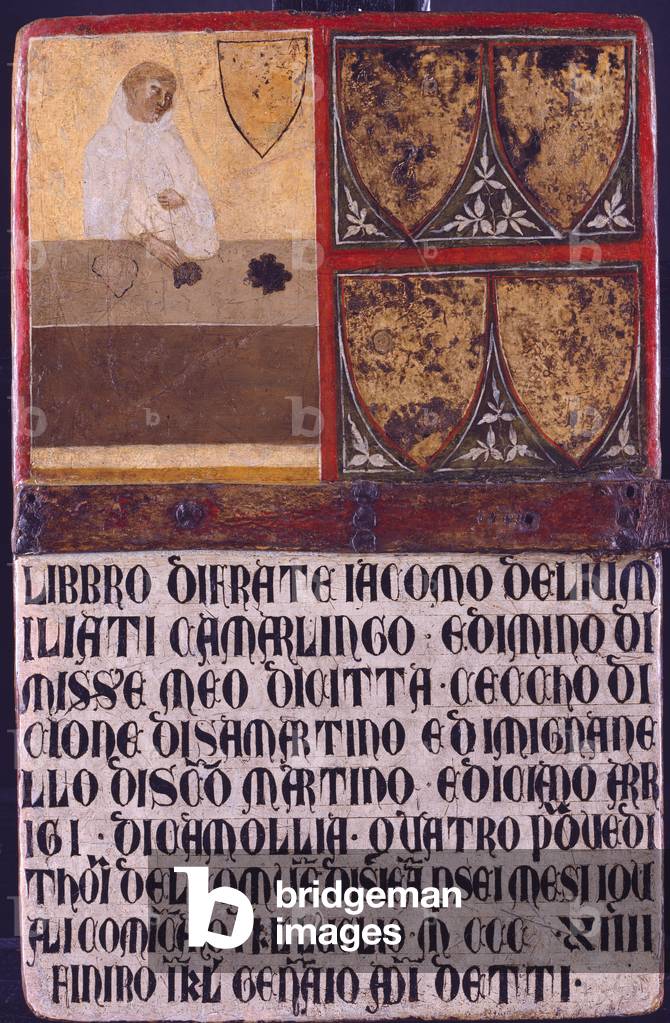 LIBBRO DIFRATE IACOMO DELIUM
ILIATI CAMARLINGO · EDIMINO DI
MISSE MEO DICITTA · CECCHO DI
CIONE DISAMARTINO EDIMIGNANE
LLO DISCO MARTINO · EDICIANO ARR
IGI · DICAMOLLIA · QUATRO POVEDI
THORI DEL COMUNE DI SIENA PSEI MESI IQU
ALI COMICA M CCC · XIIII
FINIRO IKL GENAIO ADI DETTI ·
bridgeman
images